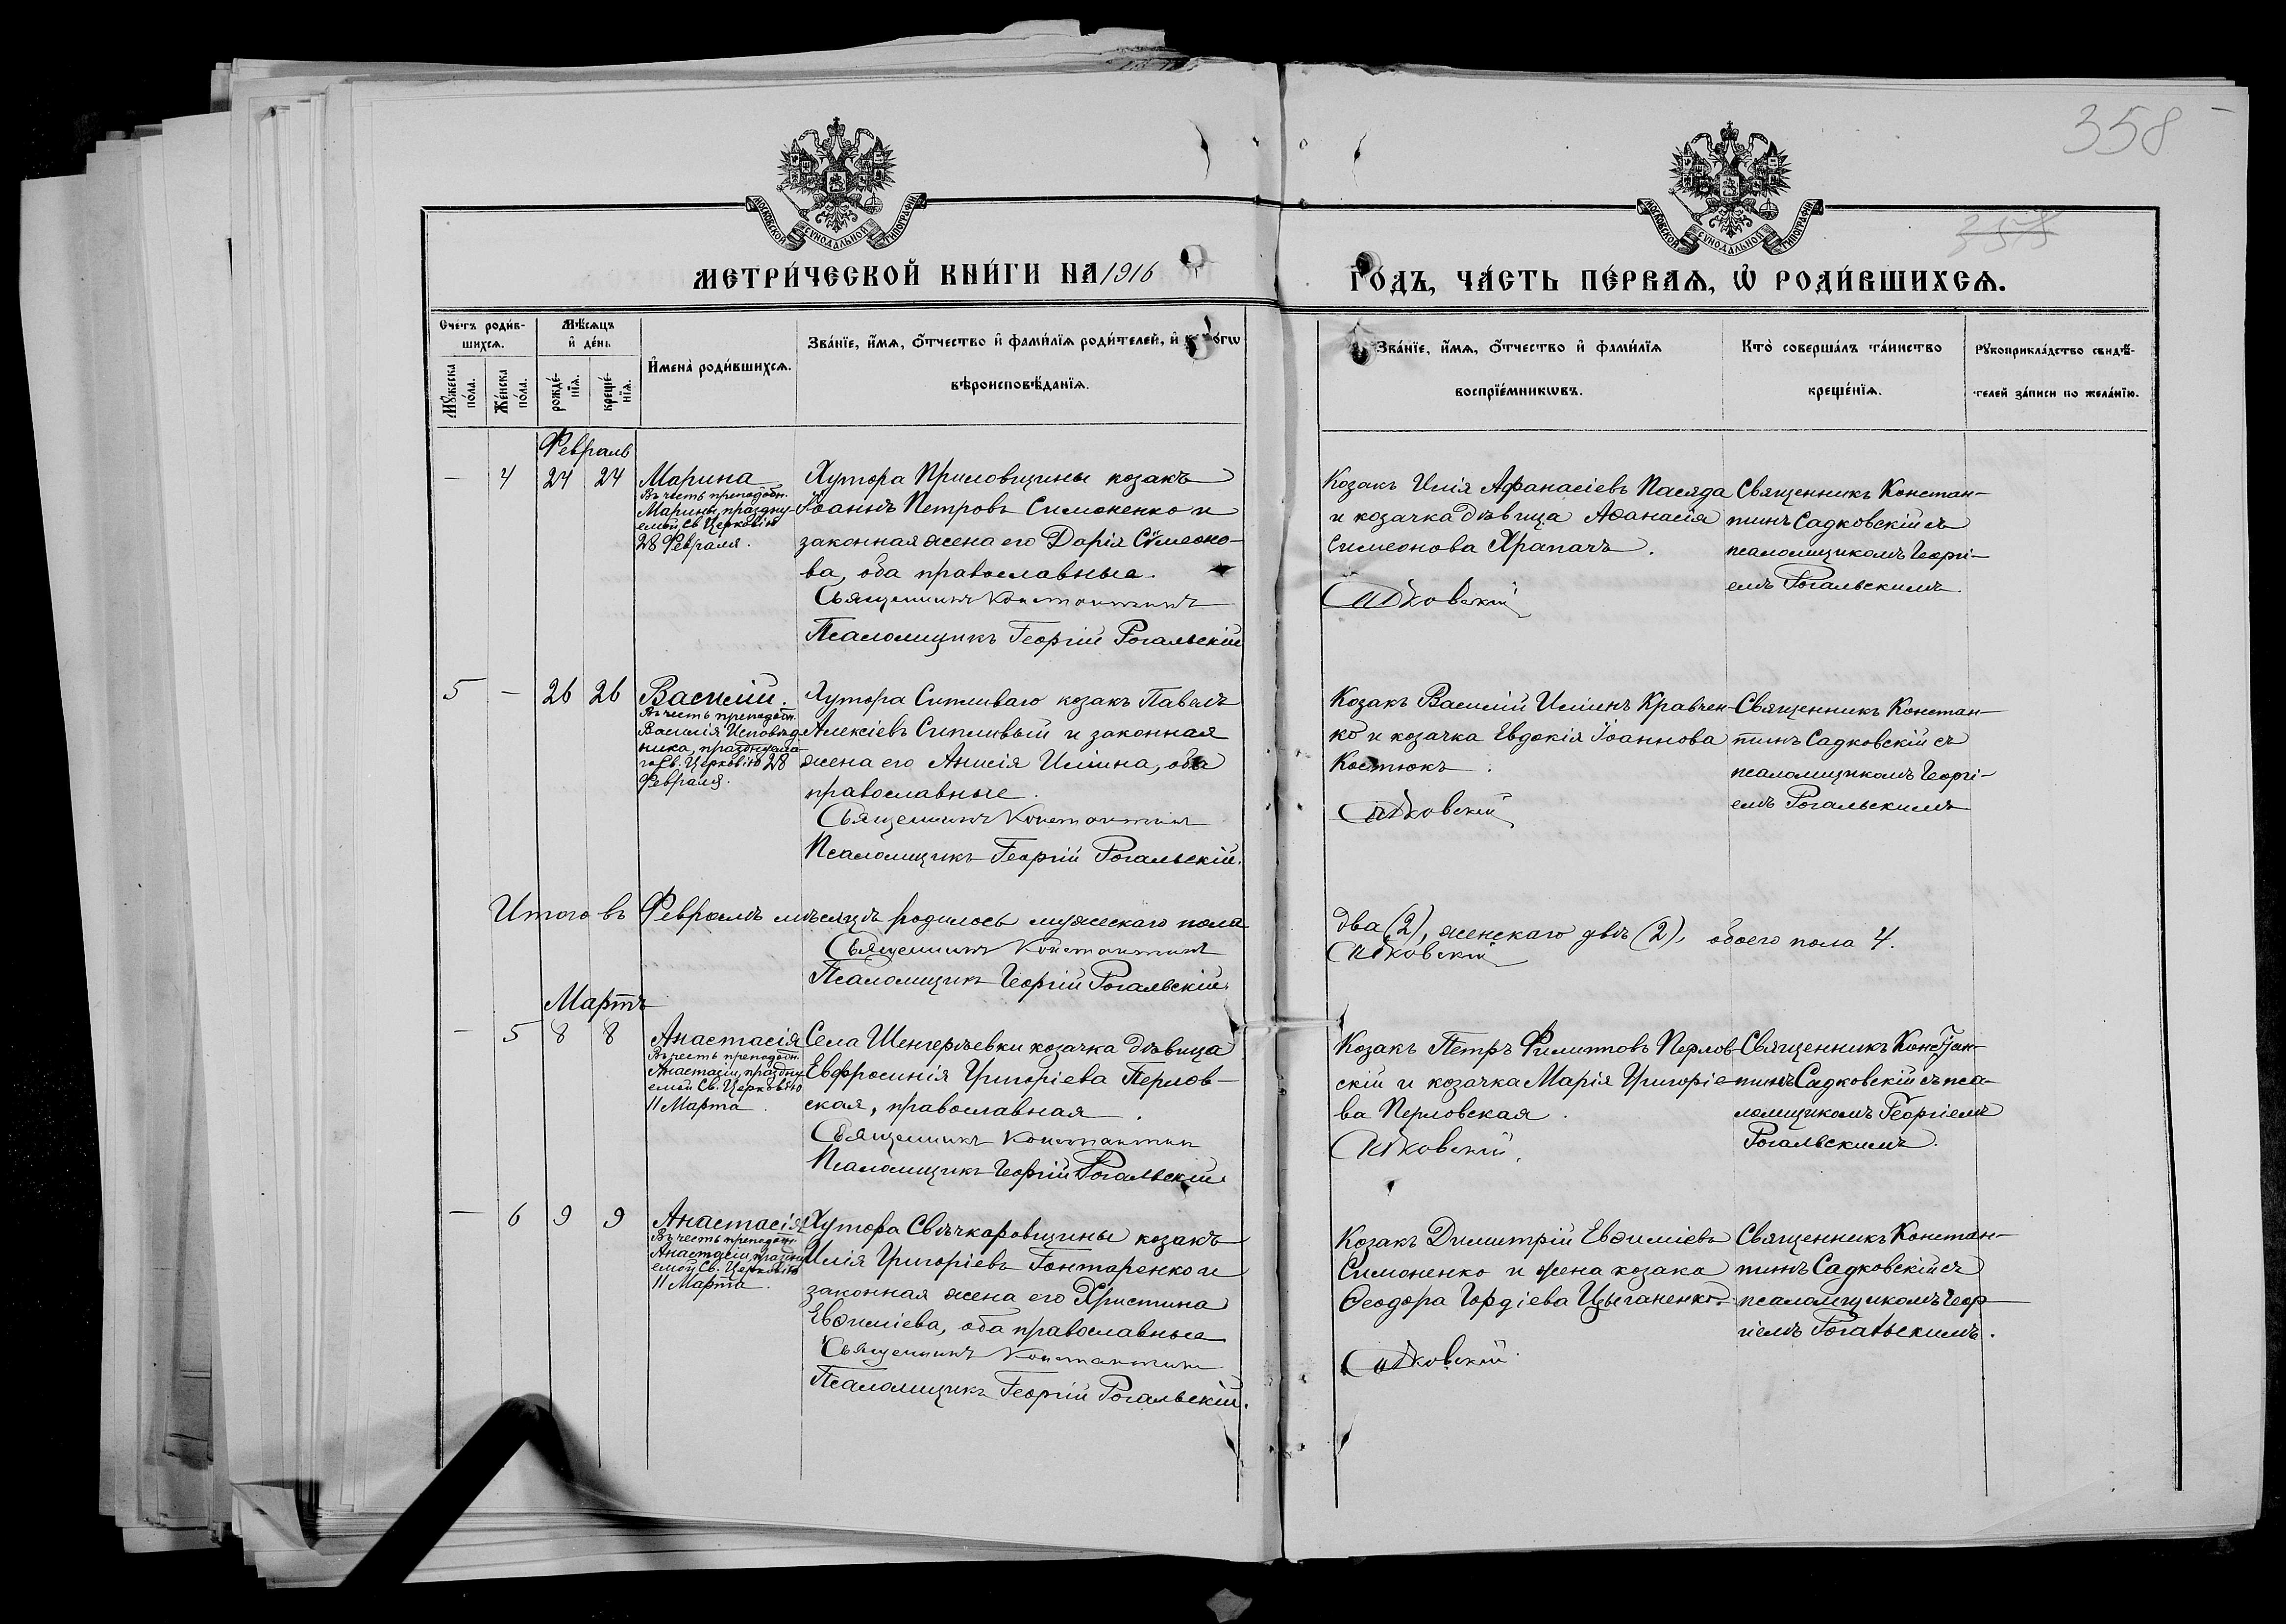 358
МОСКОВСКОЙ СѴНОДАЛЬНОЙ ТИПОГРАФІИ
МОСКОВСКОЙ СѴНОДАЛЬНОЙ ТИПОГРАФІИ
МЕТРИ́ЧЕСКОЙ КНИ́ГИ НА 1916
ГО́ДЪ, ЧА́СТЬ ПЕ́РВАѦ, Ѡ҆ РОДИ́ВШИХСѦ.
Счетъ роди́в-
шихсѧ.
Мꙋ́жеска по́ла.
Же́нска по́ла.
Мѣ́сѧцъ и҆ де́нь
рожде́-нїѧ.
креще́-нїѧ.
И҆мена̀ роди́вшихсѧ.
Зва́нїе, и҆́мѧ, ѻ҆́тчество и҆ фами́лїѧ роди́телей, и҆
вѣроисповѣ́данїѧ.
Зва́нїе, и҆́мѧ, ѻ҆́тчество и҆ фами́лїѧ
воспрїе́мникѡвъ.
Кто̀ соверша́лъ та́инство
креще́нїѧ.
Рꙋкоприкла́дство свидѣ́-
телей за́писи по жела́нїю.
Февраль
— 4 24 24 Марина
Въ честь преподобн.
Марины, праздну-
емой Св. Церковію
28 Февраля.
Хутора Приловщины козакъ
Іоаннъ Петровъ Симоненко и
законная жена его Дарія Сѵмеоно-
ва, оба православные.
Священникъ Константинъ
Псаломщикъ Георгій Рогальскій
Козакъ Илія Афанасіевъ Пасяда
и козачка дѣвица Аѳанасія
Симеонова Храпачъ.
Садковскій
Священникъ Констан-
тинъ Садковскій съ
псаломщикомъ Георгі-
емъ Рогальскимъ.
5 — 26 26 Василій.
Въ честь преподобн.
Василія Исповѣд-
ника, празднуема-
го Св. Церковію 28
Февраля.
Хутора Сипливаго козакъ Павелъ
Алексіевъ Сипливый и законная
жена его Анисія Иліина, оба
православные.
Священникъ Константинъ
Псаломщикъ Георгій Рогальскій.
Козакъ Василій Иліинъ Кравчен-
ко и козачка Евдокія Іоаннова
Костюкъ.
Садковскій
Священникъ Констан-
тинъ Садковскій съ
псаломщикомъ Георгі-
емъ Рогальскимъ
Итого въ Февралѣ мѣсяцѣ родилось мужескаго пола
два (2), женскаго двѣ (2), обоего пола 4.
Священникъ Константинъ
Садковскій
Псаломщикъ Георгій Рогальскій.
Мартъ
— 5 8 8 Анастасія
Въ честь преподобн.
Анастасіи, праздну-
емой Св. Церковію
11 Марта.
Села Шенгерѣевки козачка дѣвица
Евфросинія Григоріева Перлов-
ская, православная.
Священникъ Константин
Псаломщикъ Георгій Рогальскій
Козакъ Петръ Филипповъ Перлов-
скій и козачка Марія Григоріе-
ва Перловская.
Садковскій.
Священникъ Констан-
тинъ Садковскій съ пса-
ломщикомъ Георгіемъ
Рогальскимъ.
— 6 9 9 Анастасія
Въ честь преподобн.
Анастасіи праздну-
емой Св. Церковію
11 Марта.
Хутора Свѣчкаровщины козакъ
Илія Григоріевъ Гонтаренко и
законная жена его Христина
Евѳиміева, оба православные
Священникъ Константинъ
Псаломщикъ Георгій Рогальскій.
Козакъ Димитрій Евѳиміевъ
Симоненко и жена козака
Ѳеодора Гордіева Цыганенко.
Садковскій
Священникъ Констан-
тинъ Садковскій съ
псаломщикомъ Геор-
гіемъ Рогальскимъ.